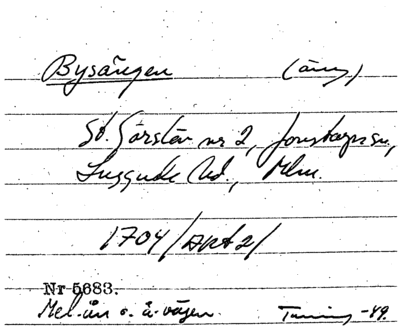 Bysången (äng)
St. Görslöv nr 2, Jonstorps sn,
Luggude hd., Mlm.
1704/Akt 2/
Nr 5683.
Mel. ån o. å-vägen -89.